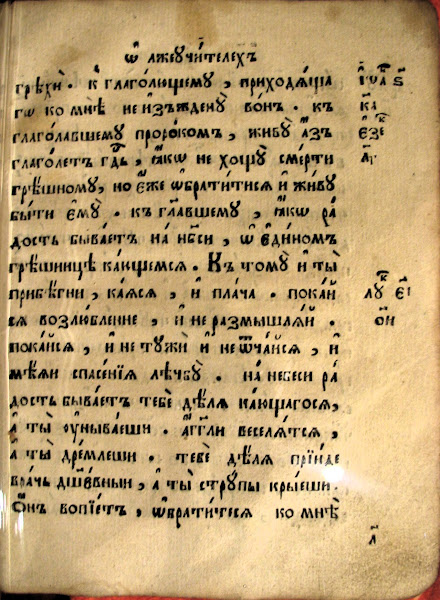 Ѡ лжеꙋчи́телехъ
грѣхи̑ . к̾ глаго́лющемꙋ , приходѧ́ща
гѡ ко мнѣ̀ не и҆зжденꙋ̀ во́нъ . къ
глаго́лавшемꙋ проро́комъ , живꙋ̀ а҆́зъ
глаго́летъ гд҇ь , ꙗ҆́кѡ не хощꙋ̀ сме́рти
грѣ́шномꙋ , но є҆́же ѡ҆брати́тисѧ и҆ жи́вꙋ
бы́ти є҆мꙋ̀ . къ гл҃авшемꙋ , ꙗ҆́кѡ ра́
дость быва́етъ на нб҃си , ѡ҆ є҆ди́номъ
грѣ́шницѣ ка́ющемсѧ . Къ томꙋ̀ и҆ ты̀
прибѣ́гни , ка́ѧсѧ , и҆ пла́ча . пока́й
сѧ возлю́бленне , и҆ не размышлѧ́й .
пока́йсѧ , и҆ не тꙋжѝ и҆ не ѿча́йсѧ , и҆
мѣ́ѧй спасе́нїѧ лѣ́чбꙋ . на небесѝ ра́
дость быва́етъ тебѐ дѣ́лѧ ка́ющагосѧ ,
а҆ ты̀ ᲂу҆ныва́еши . а҆́гг҃ли веселѧ́тсѧ ,
а҆ ты̀ дре́млеши . тебѐ дѣ́лѧ прїи́де
вра́чь дш҃е́вныи , а҆ ты̀ стрꙋ́пы кры́еши .
Ѻ҆́нъ вопїе́тъ , ѡ҆брати́тесѧ ко мнѣ̀
і҆ѡа҃ ѕ҃
к҃а
є҆зе
л҃г
лꙋк є҃і